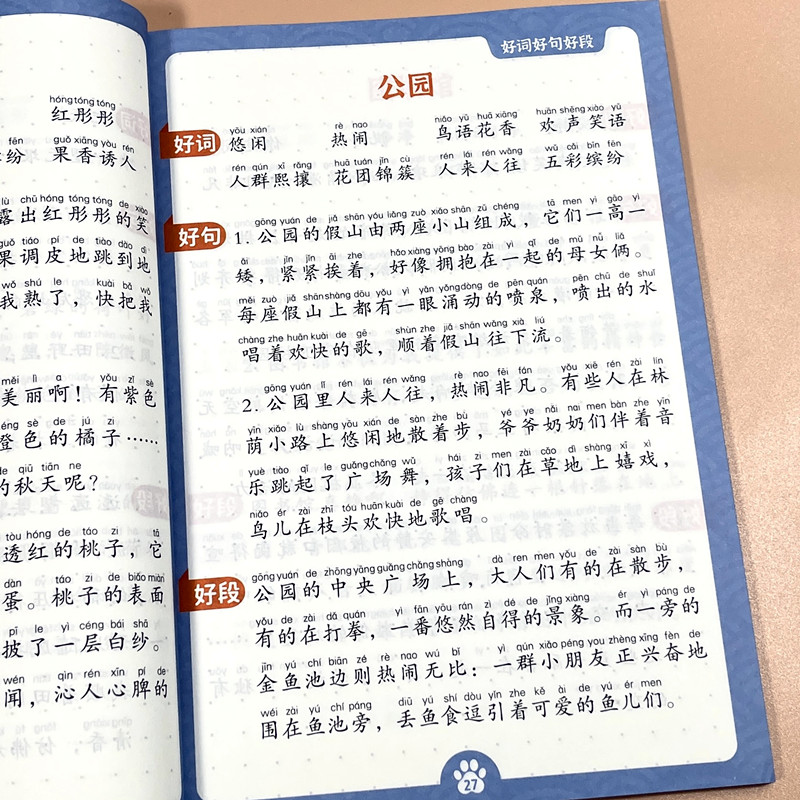 hóng tóng tóng
红彤彤
fēn guǒ xiāng yòu rén
纷 果香诱人
lù chū hóng tóng tóng de xiào
露出红彤彤的笑
guǒ tiáo pí de tiào dào dì
果调皮地跳到地
wǒ shú le kuài bǎ wǒ
我熟了，快把我
měi lì a yǒu zǐ sè
美丽啊！有紫色
chéng sè de jú zi
橙色的橘子……
de qiū tiān ne
的秋天呢？
tòu hóng de táo zi tā
透红的桃子，它
dàn táo zi de biǎo miàn
蛋。桃子的表面
pī le yì céng bái shā
披了一层白纱。
wén qìn rén xīn pí de
闻，沁人心脾的
好词好句好段
公园
yōu xián rè nao niǎo yǔ huā xiāng huān shēng xiào yǔ
好词 悠闲 热闹 鸟语花香 欢声笑语
rén qún xī rǎng huā tuán jǐn cù rén lái rén wǎng wǔ cǎi bīn fēn
人群熙攘 花团锦簇 人来人往 五彩缤纷
gōng yuán de jiǎ shān yóu liǎng zuò xiǎo shān zǔ chéng tā men yì gāo yì
好句 1. 公园的假山由两座小山组成，它们一高一
ǎi jǐn jǐn āi zhe hǎo xiàng yōng bào zài yì qǐ de mǔ nǚ liǎ
矮，紧紧挨着，好像拥抱在一起的母女俩。
měi zuò jiǎ shān shàng dōu yǒu yì yǎn yǒng dòng de pēn quán pēn chū de shuǐ
每座假山上都有一眼涌动的喷泉，喷出的水
chàng zhe huān kuài de gē shùn zhe jiǎ shān wǎng xià liú
唱着欢快的歌，顺着假山往下流。
gōng yuán lǐ rén lái rén wǎng rè nao fēi fán yǒu xiē rén zài lín
2. 公园里人来人往，热闹非凡。有些人在林
yīn xiǎo lù shàng yōu xián de sàn zhe bù yé ye nǎi nai men bàn zhe yīn
荫小路上悠闲地散着步，爷爷奶奶们伴着音
yuè tiào qǐ le guǎng chǎng wǔ hái zi men zài cǎo dì shàng xī xì
乐跳起了广场舞，孩子们在草地上嬉戏，
niǎo ér zài zhī tóu huān kuài de gē chàng
鸟儿在枝头欢快地歌唱。
gōng yuán de zhōng yāng guǎng chǎng shàng dà ren men yǒu de zài sàn bù
好段 公园的中央广场上，大人们有的在散步，
yǒu de zài dǎ quán yì fān yōu rán zì dé de jǐng xiàng ér yì páng de
有的在打拳，一番悠然自得的景象。而一旁的
jīn yú chí biān zé rè nao wú bǐ yì qún xiǎo péng you zhèng xīng fèn de
金鱼池边则热闹无比：一群小朋友正兴奋地
wéi zài yú chí páng diū yú shí dòu yǐn zhe kě ài de yú ér men
围在鱼池旁，丢鱼食逗引着可爱的鱼儿们。
27